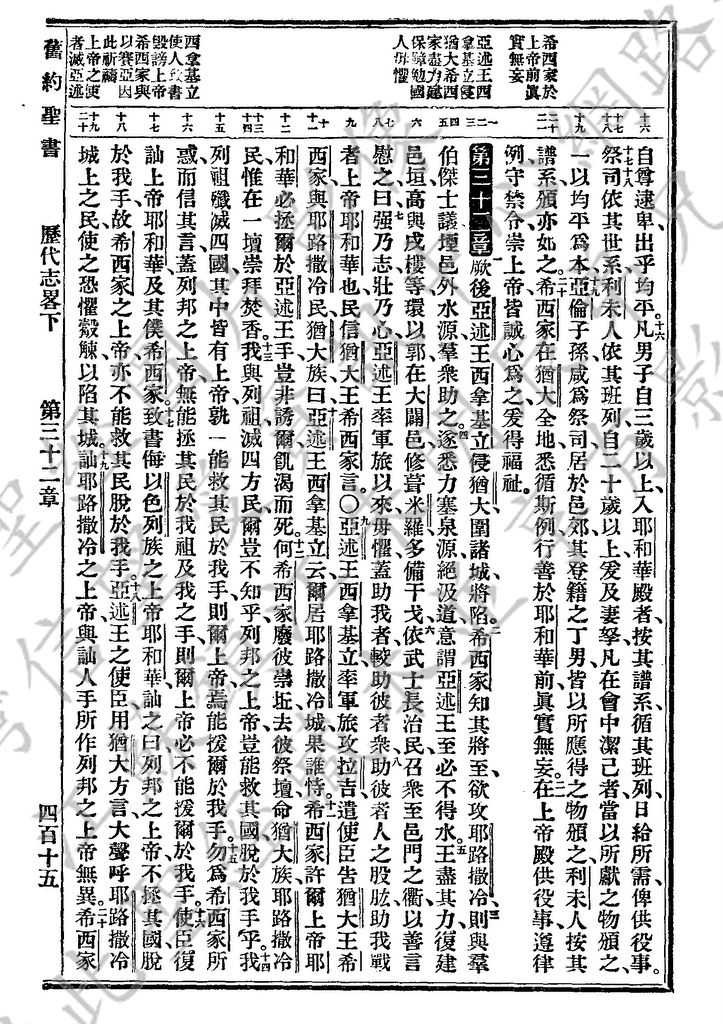 希西家於
上帝前眞
實無妄
亞述王西
拿基立侵
猶大希西
家盡力建
保障勉國
人毋懼
西拿基立
使人致書
毀謗上帝
希西家與
以賽亞因
此祈禱
上帝之使
者滅亞述
自尊逮卑出乎均平十六凡男子自三歲以上入耶和華殿者按其譜系循其班列日給所需俾供役事
十七十八祭司依其世系利未人依其班列自二十歲以上爰及妻孥凡在會中潔己者當以所獻之物頒之
一以均平爲本十九亞倫子孫咸爲祭司居於邑郊其登籍之丁男皆以所應得之物頒之利未人按其
譜系頒亦如之二十希西家在猶大全地悉循斯例行善於耶和華前眞實無妄二一在上帝殿供役事遵律
例守禁令崇上帝皆誠心爲之爰得福祉
第三十二章一厥後亞述王西拿基立侵猶大圍諸城將陷二希西家知其將至欲攻耶路撒冷三則與羣
伯傑士議堙邑外水源羣衆助之四遂悉力塞泉源絕汲道意謂亞述王至必不得水五王盡其力復建
邑垣高與戌樓等環以郭在大闢邑修葺米羅多備干戈六依武士長治民召衆至邑門之衢以善言
慰之曰七强乃志壯乃心亞述王率軍旅以來毋懼蓋助我者較助彼者衆八助彼者人之股肱助我戰
者上帝耶和華也民信猶大王希西家言〇九亞述王西拿基立率軍旅攻拉吉遣使臣告猶大王希
西家與耶路撒冷民猶大族曰十亞述王西拿基立云爾居耶路撒冷城果誰恃十一希西家許爾上帝耶
和華必拯爾於亞述王手豈非誘爾飢渴而死十二何希西家廢彼崇坵去彼祭壇命猶大族耶路撒冷
民惟在一壇崇拜焚香十三我與列祖滅四方民爾豈不知乎列邦之上帝豈能救其國脫於我手乎十四我
列祖殲滅四國其中皆有上帝孰一能救其民於我手則爾上帝焉能援爾於我手十五勿爲希西家所
惑而信其言蓋列邦之上帝無能拯其民於我祖及我之手則爾上帝必不能援爾於我手十六使臣復
訕上帝耶和華及其僕希西家十七致書侮以色列族之上帝耶和華訕之曰列邦之上帝不拯其國脫
於我手故希西家之上帝亦不能救其民脫於我手十八亞述王之使臣用猶大方言大聲呼耶路撒冷
城上之民使之恐懼觳觫以陷其城十九訕耶路撒冷之上帝與訕人手所作列邦之上帝無異二十希西家
舊約聖書 歷代志畧下 第三十二章 四百十五